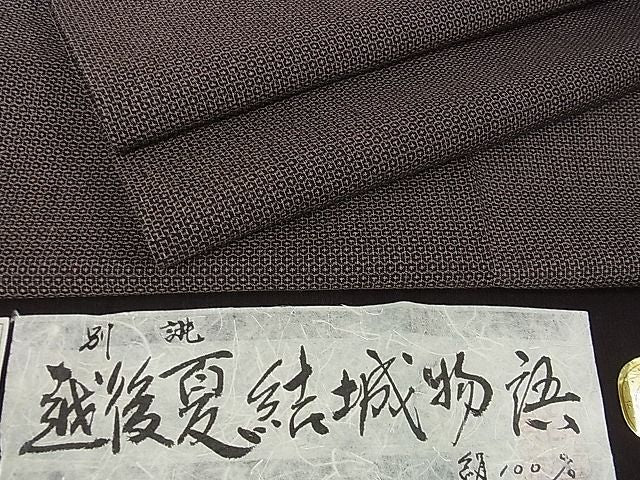 別誂
越後夏結城物語
絹100%